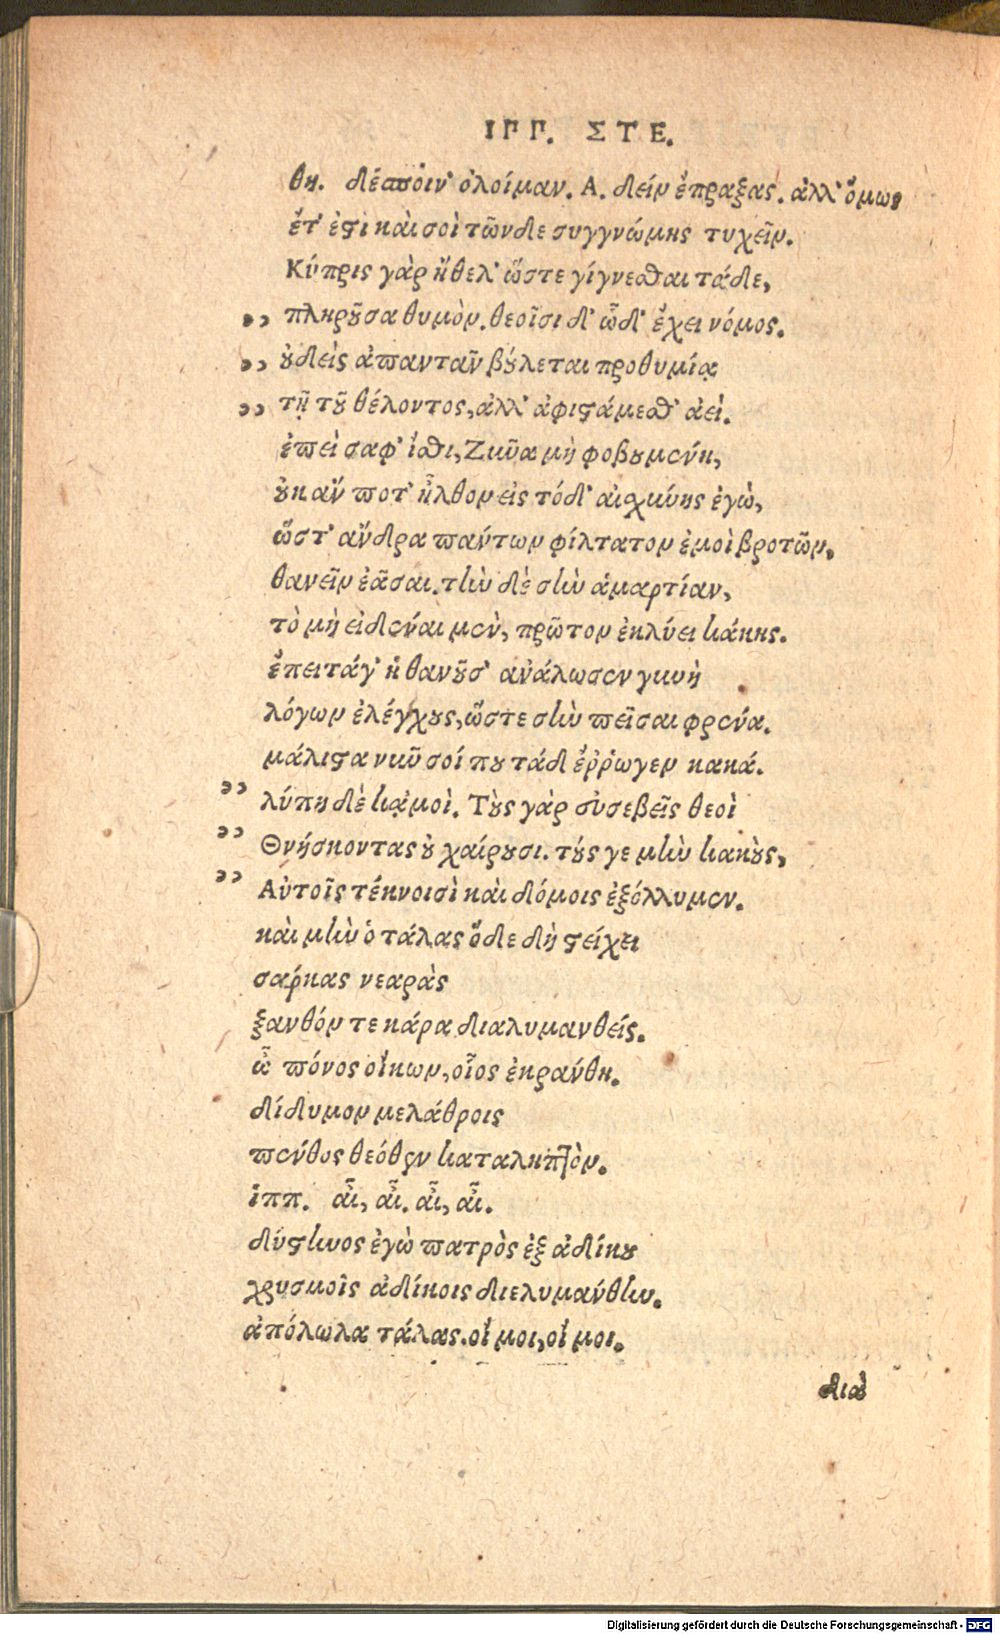 ΙΠΠ. ΣΤΕ.
θη. δέσποιν' ὀλοίμαν. Α. δείν' ἔπραξας. ἀλλ' ὅμως
ἔτ' ἐστι καὶ σοὶ τῶνδε συγγνώμης τυχεῖν.
Κύπρις γὰρ ἤθελ' ὥστε γίγνεσθαι τάδε,
„ πληροῦσα θυμὸν. θεοῖσι δ' ὧδ' ἔχει νόμος.
„ οὐδεὶς ἀπανταῖν βούλεται προθυμίᾳ
„ τῇ τοῦ θέλοντος, ἀλλ' ἀφιστάμεσθ' ἀεί.
ἐπεὶ σαφ' ἴσθι, Ζῆνα μὴ φοβουμένη,
οὐκ ἄν ποτ' ἦλθον εἰς τόδ' αἰσχύνης ἐγὼ,
ὥστ' ἄνδρα πάντων φίλτατον ἐμοὶ βροτῶν,
θανεῖν ἐᾶσαι. τὴν δὲ σὴν ἁμαρτίαν,
τὸ μὴ εἰδέναι μὲν, πρῶτον ἐκλύει κάκης.
ἔπειτάγ' ἡ θανοῦσ' ἀνάλωσεν γυνὴ
λόγων ἐλέγχους, ὥστε σὴν πεῖσαι φρένα.
μάλιστα νῦν σοί που τάδ ἔῤῥωγεν κακά.
„ λύπη δὲ κᾀμοὶ. Τοὺς γὰρ εὐσεβεῖς θεοὶ
„ Θνήσκοντας οὐ χαίρουσι. τούς γε μὴν κακοὺς,
„ Αὐτοῖς τέκνοισὶ καὶ δόμοις ἐξόλλυμεν.
καὶ μὴν ὁ τάλας ὅδε δὴ στείχει
σάρκας νεαρὰς
ξανθόν τε κάρα διαλυμανθείς.
ὦ πόνος οἴκων, οἷος ἐκράνθη.
δίδυμον μελάθροις
πένθος θεόθεν καταληπτὸν.
ἱππ. αἶ, αἶ. αἶ, αἶ.
δύστηνος ἐγὼ πατρὸς ἐξ ἀδίκου
χρησμοῖς ἀδίκοις διελυμάνθην.
ἀπόλωλα τάλας. οἴ μοι, οἴ μοι.
διὰ
Digitalisierung gefördert durch die Deutsche Forschungsgemeinschaft - DFG